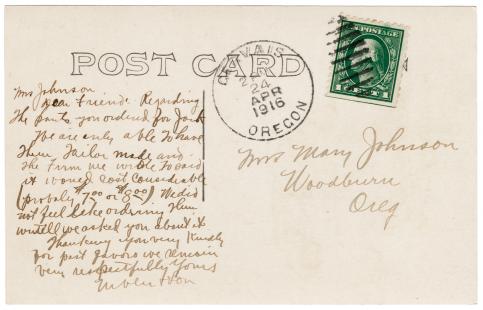 POST CARD
GERVAIS
24
APR
1916
OREGON
Mrs Johnson
Dear Friend: Regarding
the pants you ordered for Jack
We are only able to have
them Tailor made and
the Firm we wrote to said
it would cost considerable
(probaly $7.00 or $8.00) We did
not feel like ordering them
untill we asked you about it
Thanking you very Kindly
for past favors we remain
very respectfully Yours
Mrs Mary Johnson
Woodburn
Oreg